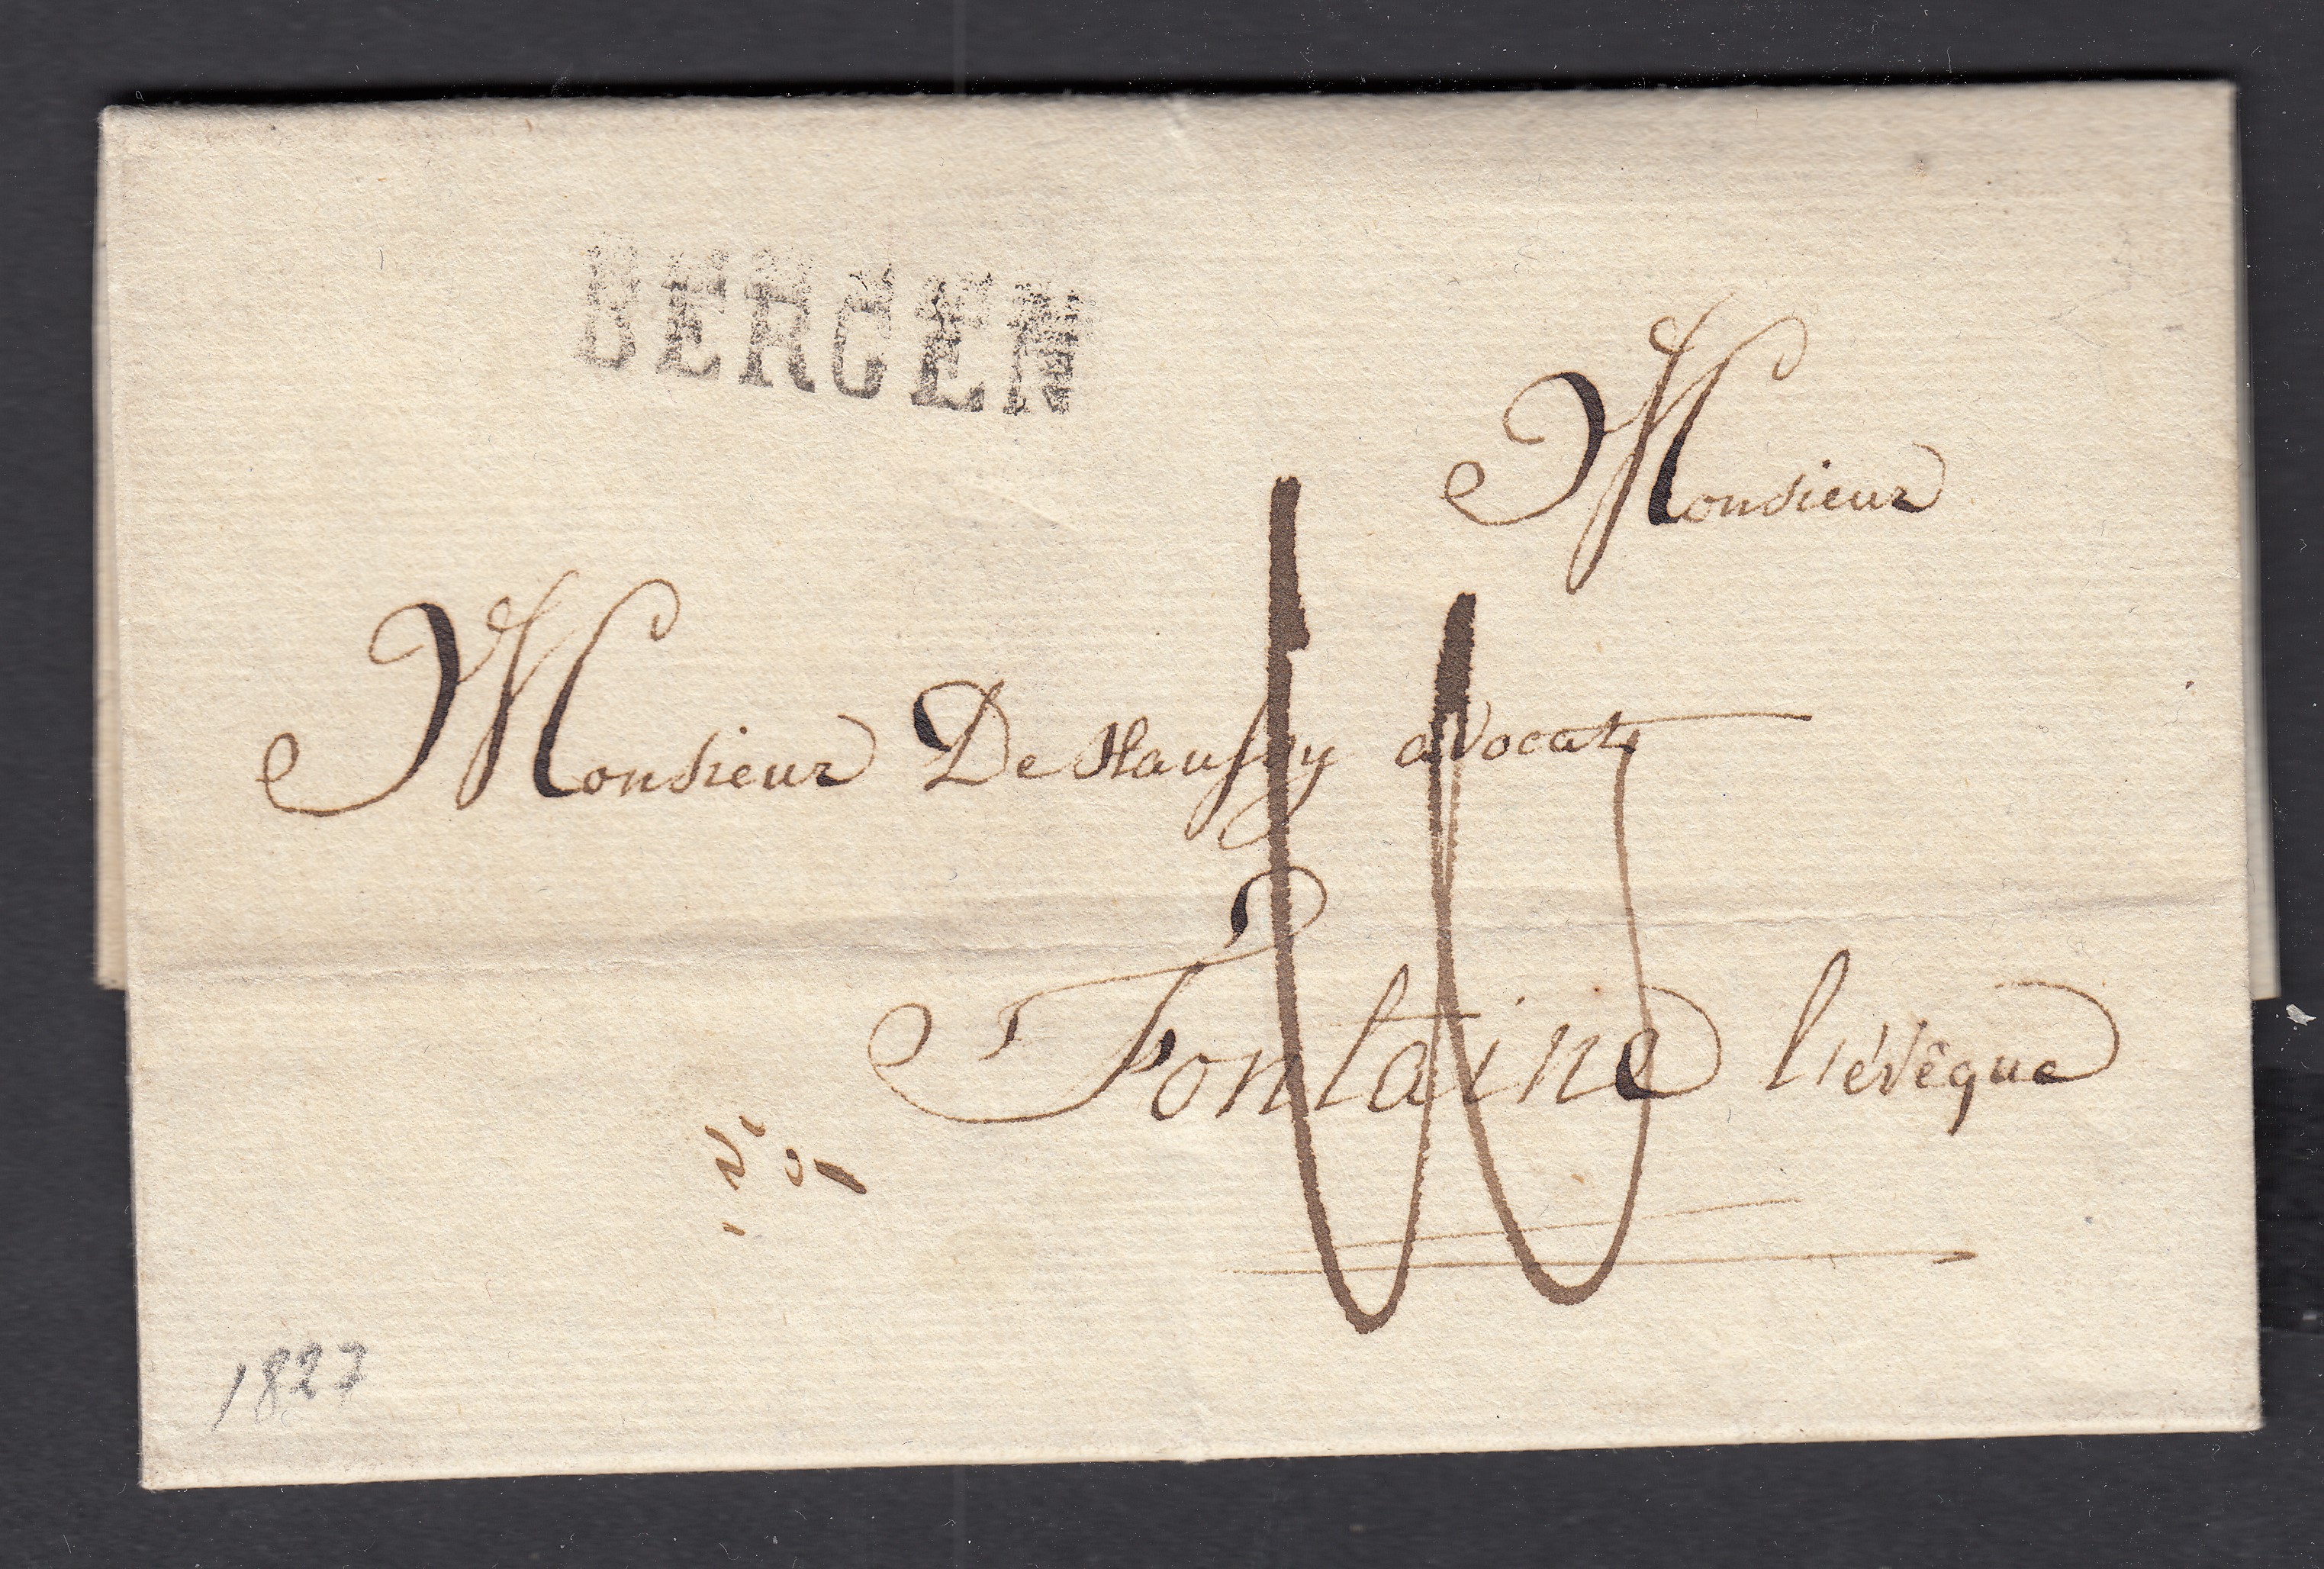 BERGEN
Monsieur
Monsieur De Haussy avocat
Fontaine l'évêque
1827